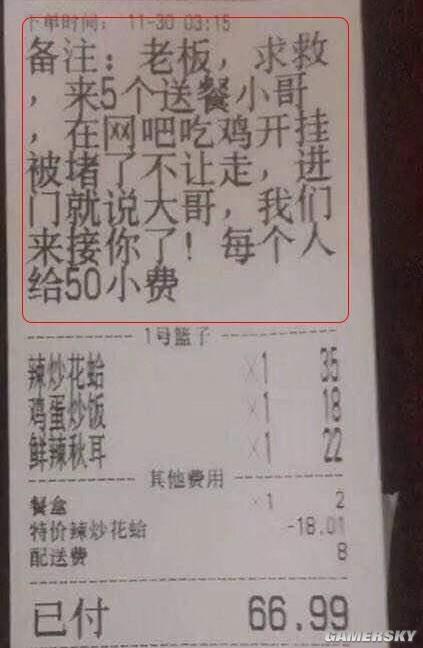 下单时间： 11-30 03:15
备注： 老板，求救
，来5个送餐小哥
，在网吧吃鸡开挂
被堵了不让走，进
门就说大哥，我们
来接你了！每个人
给50小费
1号篮子
辣炒花蛤 ×1 35
鸡蛋炒饭 ×1 18
鲜辣秋耳 ×1 22
其他费用
餐盒 ×1 2
特价辣炒花蛤 -18.01
配送费 8
已付 66.99
GAMERSKY